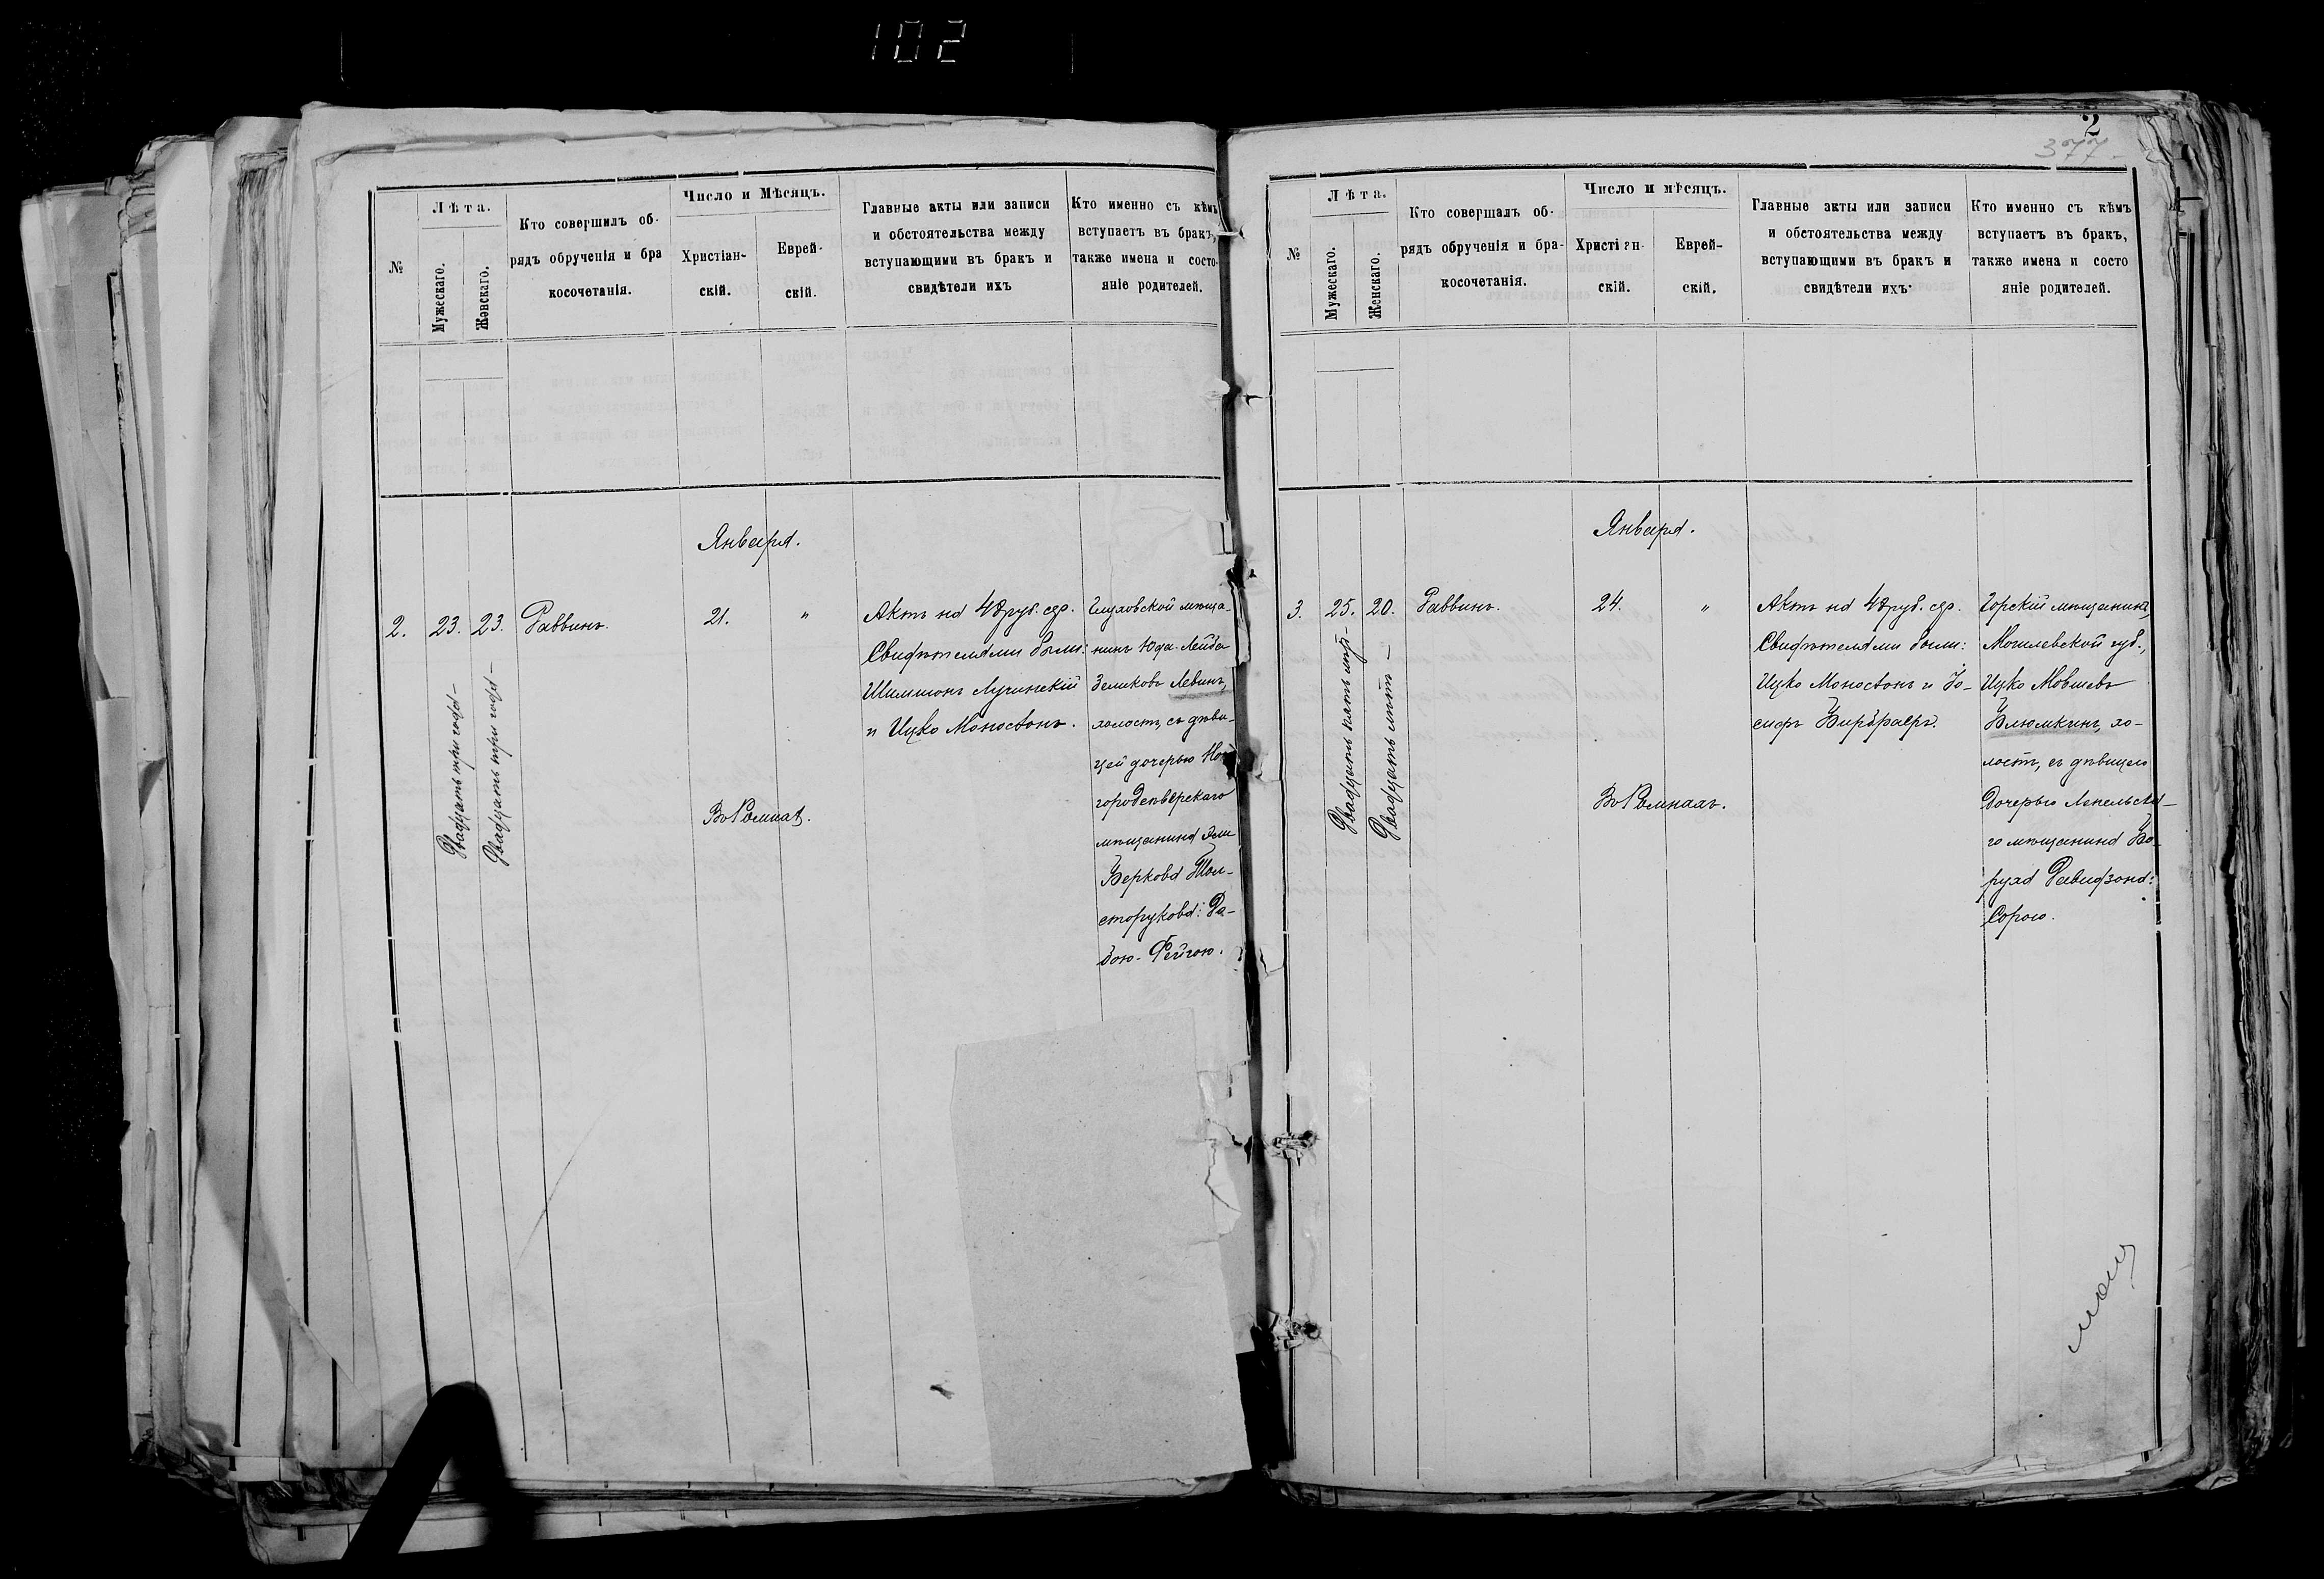 102
№
Лѣта.
Мужескаго.
Женскаго.
Кто совершилъ об-
рядъ обрученія и бра
косочетанія.
Число и Мѣсяцъ.
Христіан-
скій.
Еврей-
скій.
Главные акты или записи
и обстоятельства между
вступающими въ бракъ и
свидѣтели ихъ
Кто именно съ кѣмъ
вступаетъ въ бракъ,
также имена и состо-
яніе родителей.
Января.
2.
23.
Двадцать три года
23.
Двадцать три года
Раввинъ.
21.
"
Въ Ромнах.
Актъ на 48 руб. сер.
Свидѣтелями были:
Шимшонъ Лучинскій
и Ицко Моносзонъ.
Глуховской мѣща-
нинъ Юда-Лейба
Зеликовъ Левинъ,
холостъ, съ дѣви-
цей дочерью Нов
городсѣверскаго
мѣщанина Эли
Беркова Тол-
сторукова: Ра-
бою-Фейгою.
2
377
№
Лѣта.
Мужескаго.
Женскаго.
Кто совершалъ об-
рядъ обрученія и бра-
косочетанія.
Число и мѣсяцъ.
Христіан-
скій.
Еврей-
скій.
Главные акты или записи
и обстоятельства между
вступающими въ бракъ и
свидѣтели ихъ
Кто именно съ кѣмъ
вступаетъ въ бракъ,
также имена и состо
яніе родителей.
Января.
3.
25.
Двадцать пять лѣтъ
20.
Двадцать лѣтъ
Раввинъ.
24.
"
Въ Ромнахъ.
Актъ на 48 руб. сер.
Свидѣтелями были:
Ицко Моносзонъ и Іо-
сифъ Бирбраеръ.
Горскій мѣщанинъ,
Могилевской губ.,
Ицко Мовшевъ
Блюмкинъ, хо-
лостъ, съ дѣвицею
дочерью Лепельска-
го мѣщанина Бо-
руха Давидзона:
Сорою.